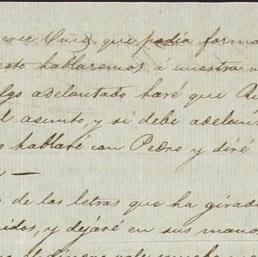 que podía forma
esto hablaremos á nuestra v
lgo adelantado haré que
l asunto, y si debe adelan
o hablaré con Pedro y diré
—
de las letras que ha girad
idos, y dejaré en sus mano